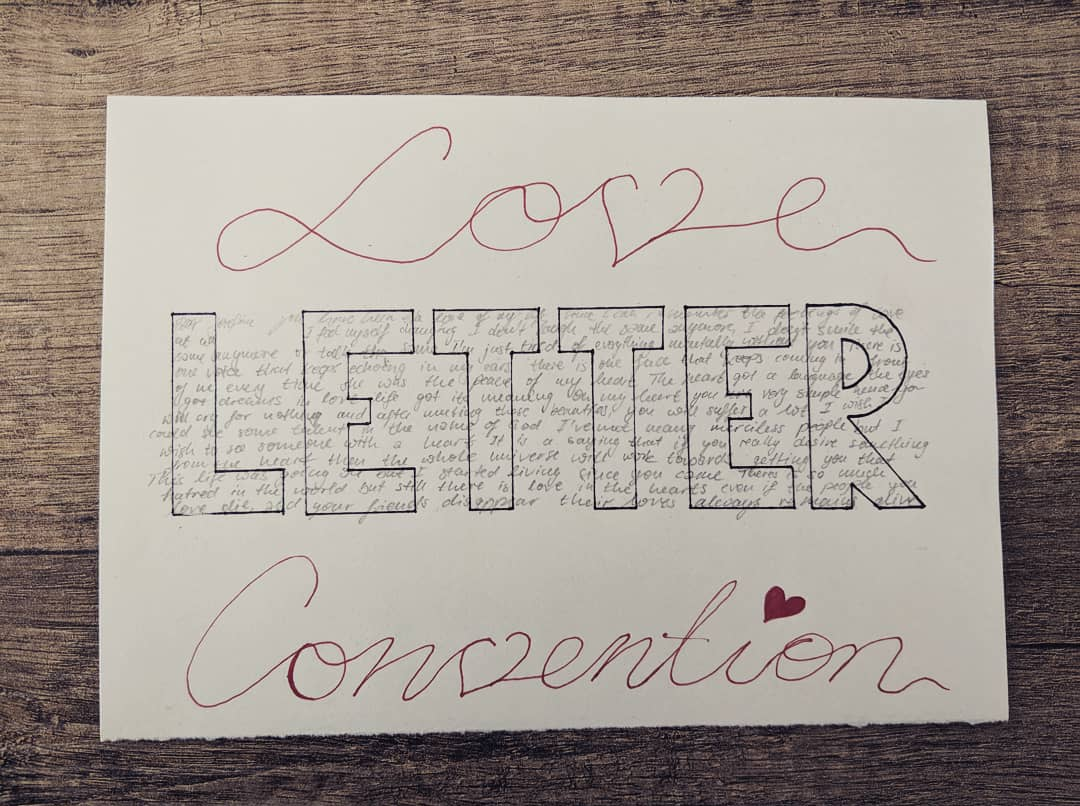 Love
LETTER
at all I feel myself changing I don't laugh the same anymore, I don't smile the
same anymore or talk the same I'm just tired of everything mentally
one voice that keeps echoing in my ears there is one face that keeps coming in front
of me every time she was the peace of my heart The heart got a language the eyes
got dreams in love life got its meaning my heart you very simple
will cry for nothing and after meeting those beauties you will suffer a lot I wish I
could see some talent in the name of God I've met many merciless people but I
wish to see someone with a heart It is a saying that if you really desire something
from the heart then the whole universe will work towards getting you that
This life was going on but I started living since you came Theres so much
hatred in the world but still there is love in the hearts even if the people you
love die and your friends disappear their loves always remains alive
Convention